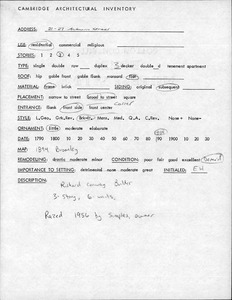 CAMBRIDGE ARCHITECTURAL INVENTORY
ADDRESS: 21-27 Street
USE: residential commercial religious
STORIES: 1 2 3 4 5
TYPE: single double row duplex 3 decker tenement apartment
ROOF: hip gable front gable flank mansard flat
MATERIAL: frame brick SIDING: original subsequent
PLACEMENT: narrow to street broad to street square
ENTRANCE: flank front side front center
STYLE: L.Geo. Gk.Rev. Ital. Mans. Med. Q.A. C.Rev. None
ORNAMENT: little moderate elaborate
DATE: 1790 1800 10 20 30 40 50 60 70 80 90 1900 10 20 30
MAP: 1894 Bromley
REMODELING: drastic moderate minor CONDITION: poor fair good excellent
IMPORTANCE TO SETTING: detrimental none moderate great INITIALED: EW
DESCRIPTION:
Richard Conway Builder
3-story, 6-units,
Razed 1956 by Simplex owner